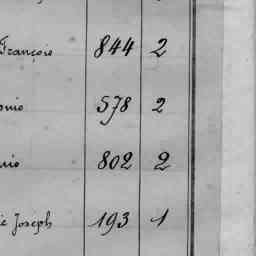 François 844 2
578 2
802 2
Joseph 193 1